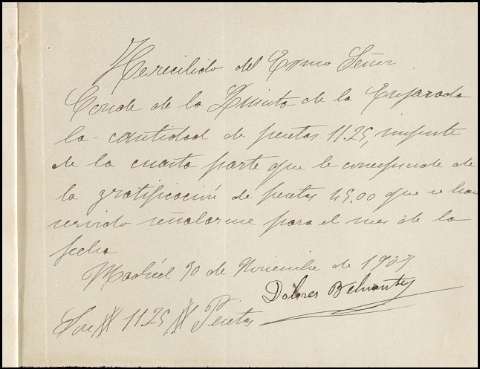 He recibido del Exmo Señor
Conde de la Quinta de la Enjarada
la cantidad de pesetas 11.25, importe
de la cuarta parte que le corresponde de
la gratificación de pesetas 45.00 que se ha
servido señalarme para el mes de la
fecha
Madrid 30 de Noviembre de 1907
Dolores Belmonte
Son # 11.25 # Pesetas